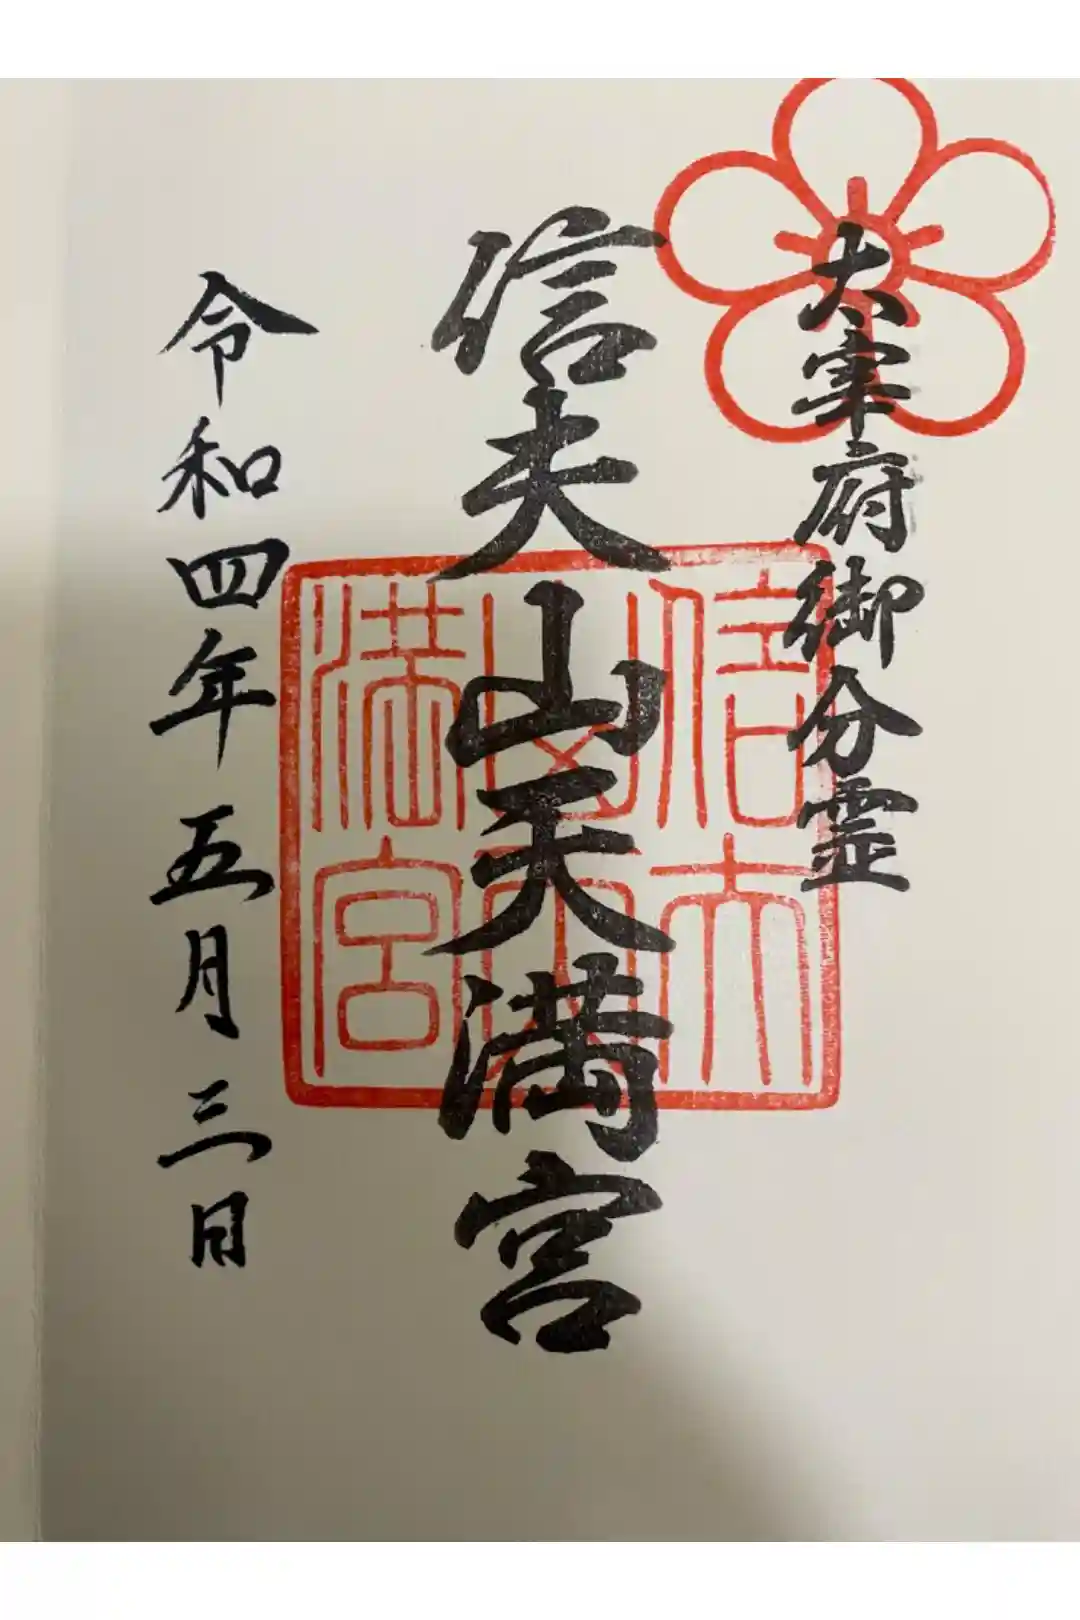 太宰府御分霊
信夫山天満宮
令和四年五月三日
信
満宮